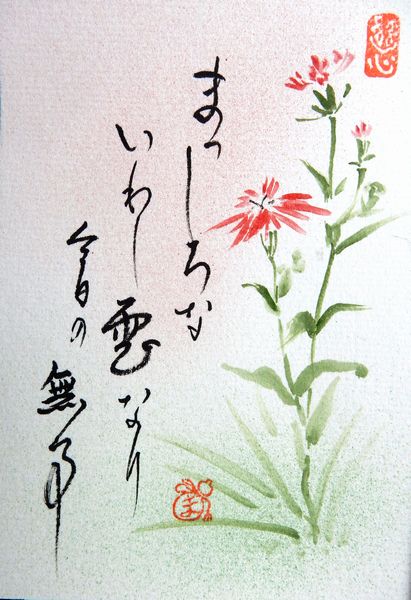 まっしろな
いわし雲なり
今日の無事